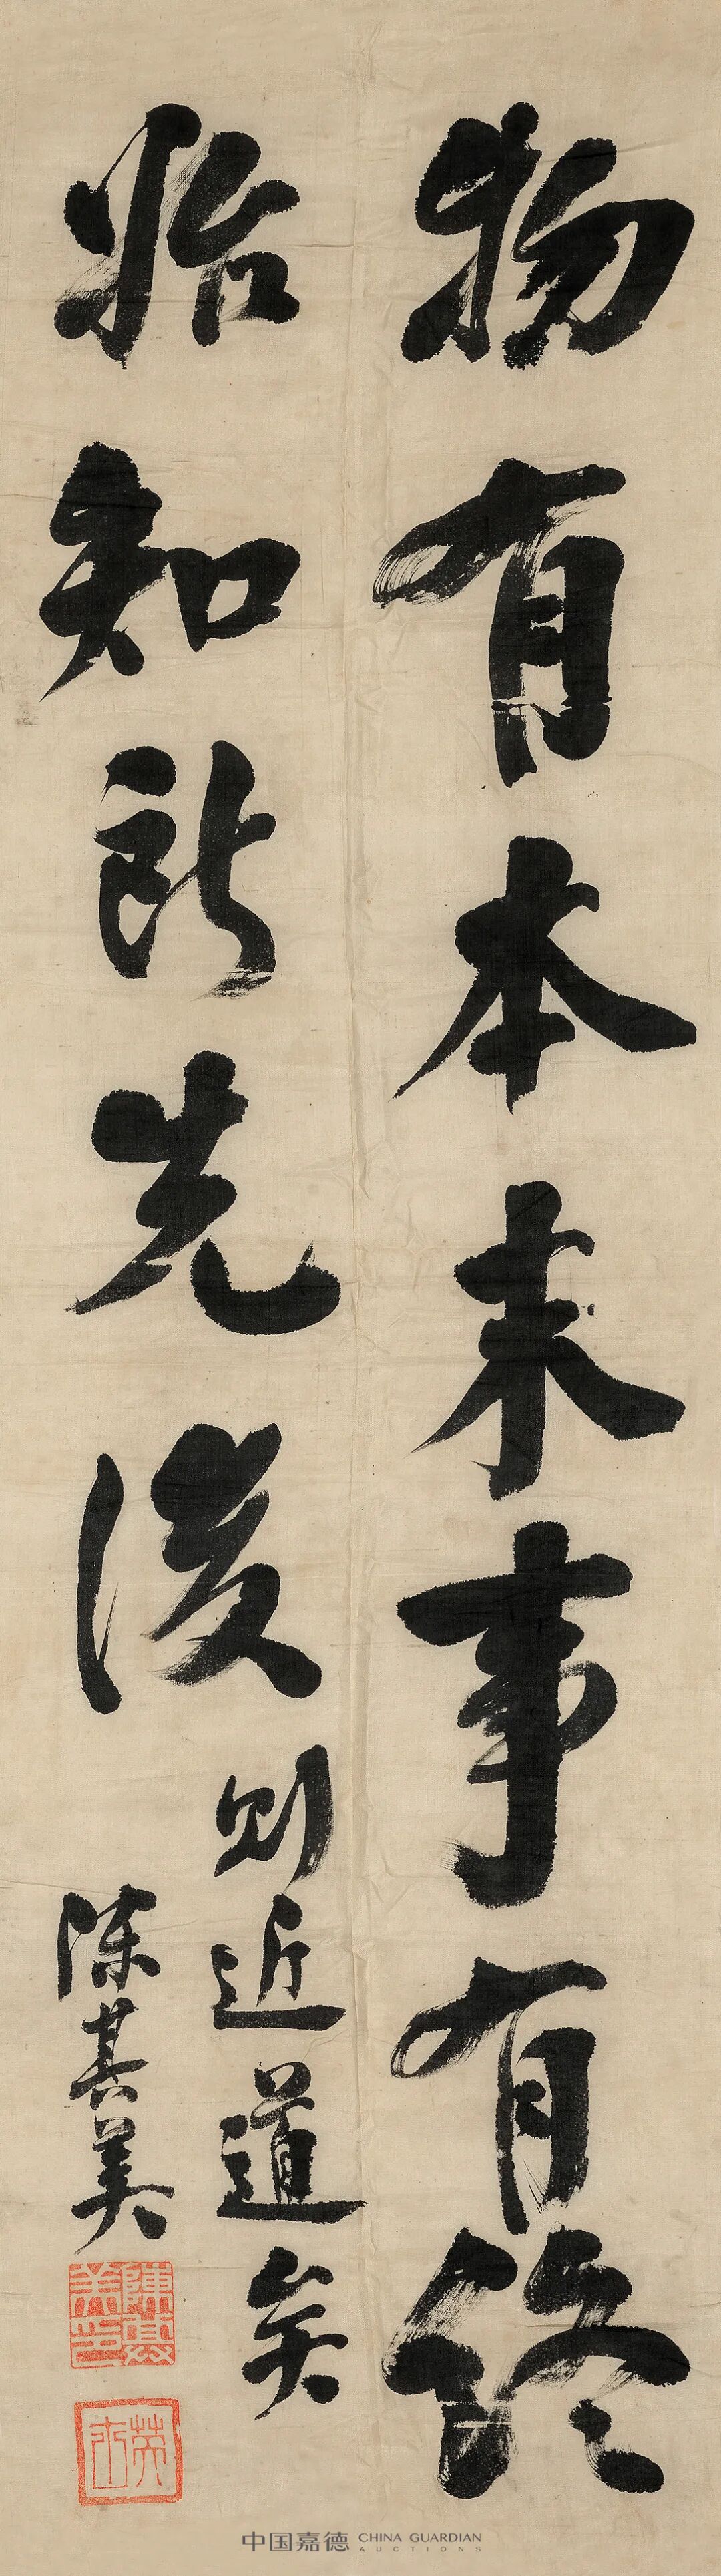 物有本末事有終
始知所先後
則近道矣
陳其美
陳其美印
英士
中国嘉德 CHINA GUARDIAN
AUCTIONS